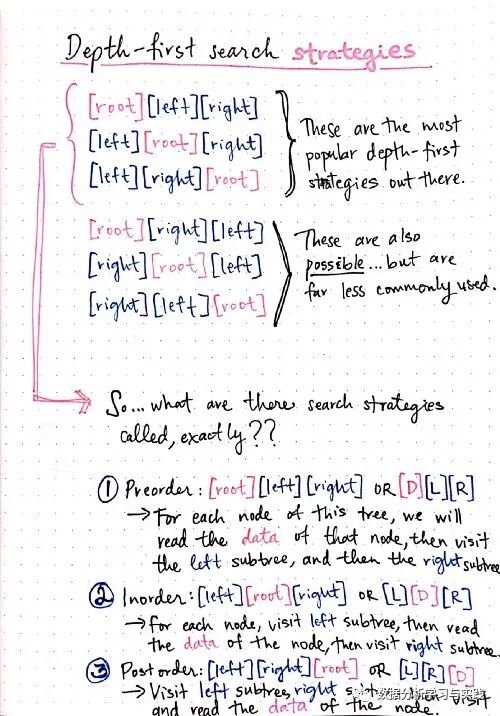 Depth-first search strategies
[root][left][right]
[left][root][right]
[left][right][root]
These are the most
popular depth-first
strategies out there.
[root][right][left]
[right][root][left]
[right][left][root]
These are also
possible...but are
far less commonly used.
So...what are there search strategies
called, exactly??
① Preorder: [root][left][right] OR [D][L][R]
→ For each node of this tree, we will
read the data of that node, then visit
the left subtree, and then the right subtree
② Inorder: [left][root][right] OR [L][D][R]
→ for each node, visit left subtree, then read
the data of the node, then visit right subtree.
③ Postorder: [left][right][root] OR [L][R][D]
→ Visit left subtree, right
and read the data of the node. visit
数据分析学习与实践